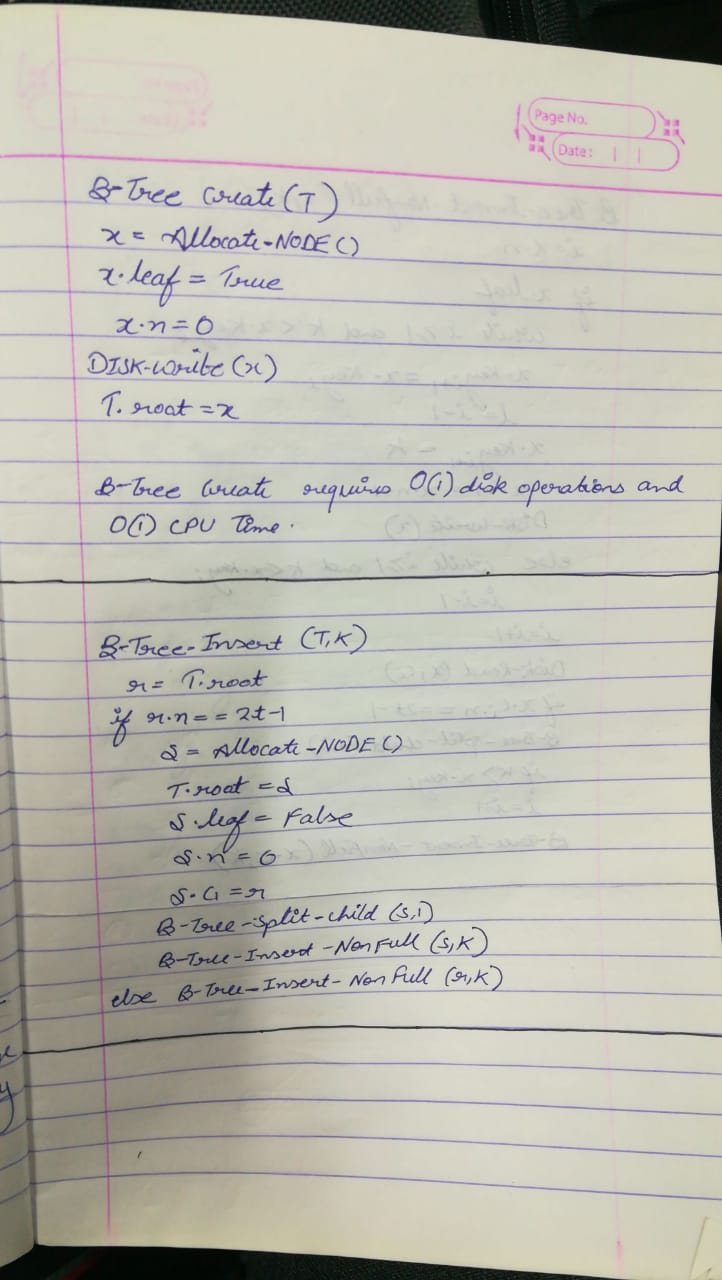 Page No.
Date:
B-Tree Create (T)
x = Allocate-NODE()
x.leaf = True
x.n = 0
DISK-write (x)
T.root = x
B-Tree Create requires O(1) disk operations and
O(1) CPU Time.
B-Tree-Insert (T,K)
r = T.root
if r.n == 2t-1
S = Allocate-NODE()
T.root = S
S.leaf = False
S.n = 0
S.C1 = r
B-Tree-Split-child (S,1)
B-Tree-Insert-NonFull (S,K)
else B-Tree-Insert-NonFull (r,K)